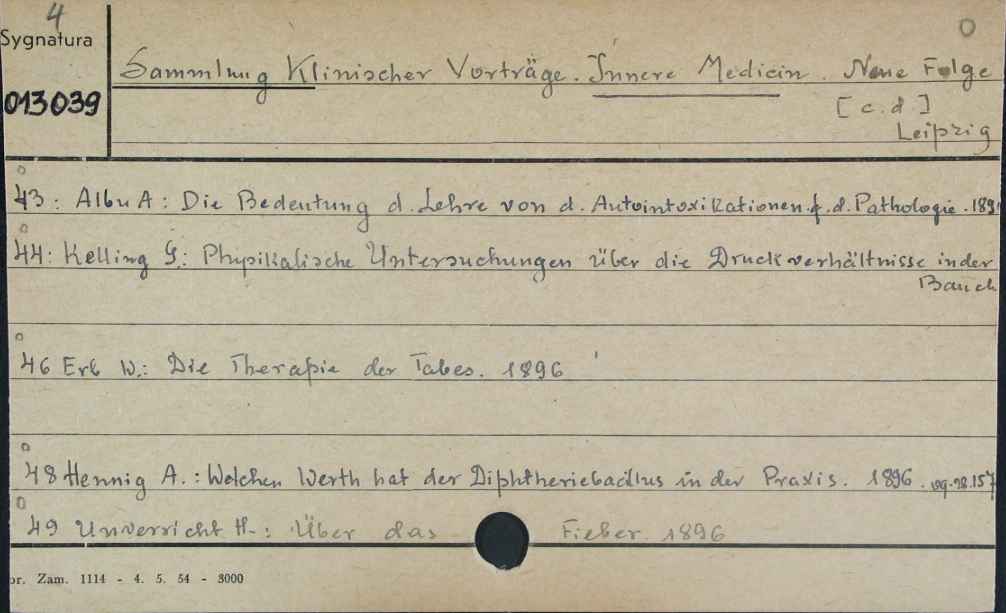 4
Sygnatura
013039
Sammlung Klinischer Vorträge. Innere Medicin. Neue Folge
[c.d]
Leipzig
43: Albu A: Die Bedeutung d. Lehre von d. Autointoxikationen f. d. Pathologie. 189
44: Kelling G.: Physikalische Untersuchungen über die Druckverhältnisse in der
Bauch
46 Erb W.: Die Therapie der Tabes. 1896
48 Hennig A.: Welchen Werth hat der Diphtheriebacillus in der Praxis. 1896.
49 Unverricht H.: Über das Fieber. 1896
or. Zam. 1114 - 4. 5. 54 - 3000